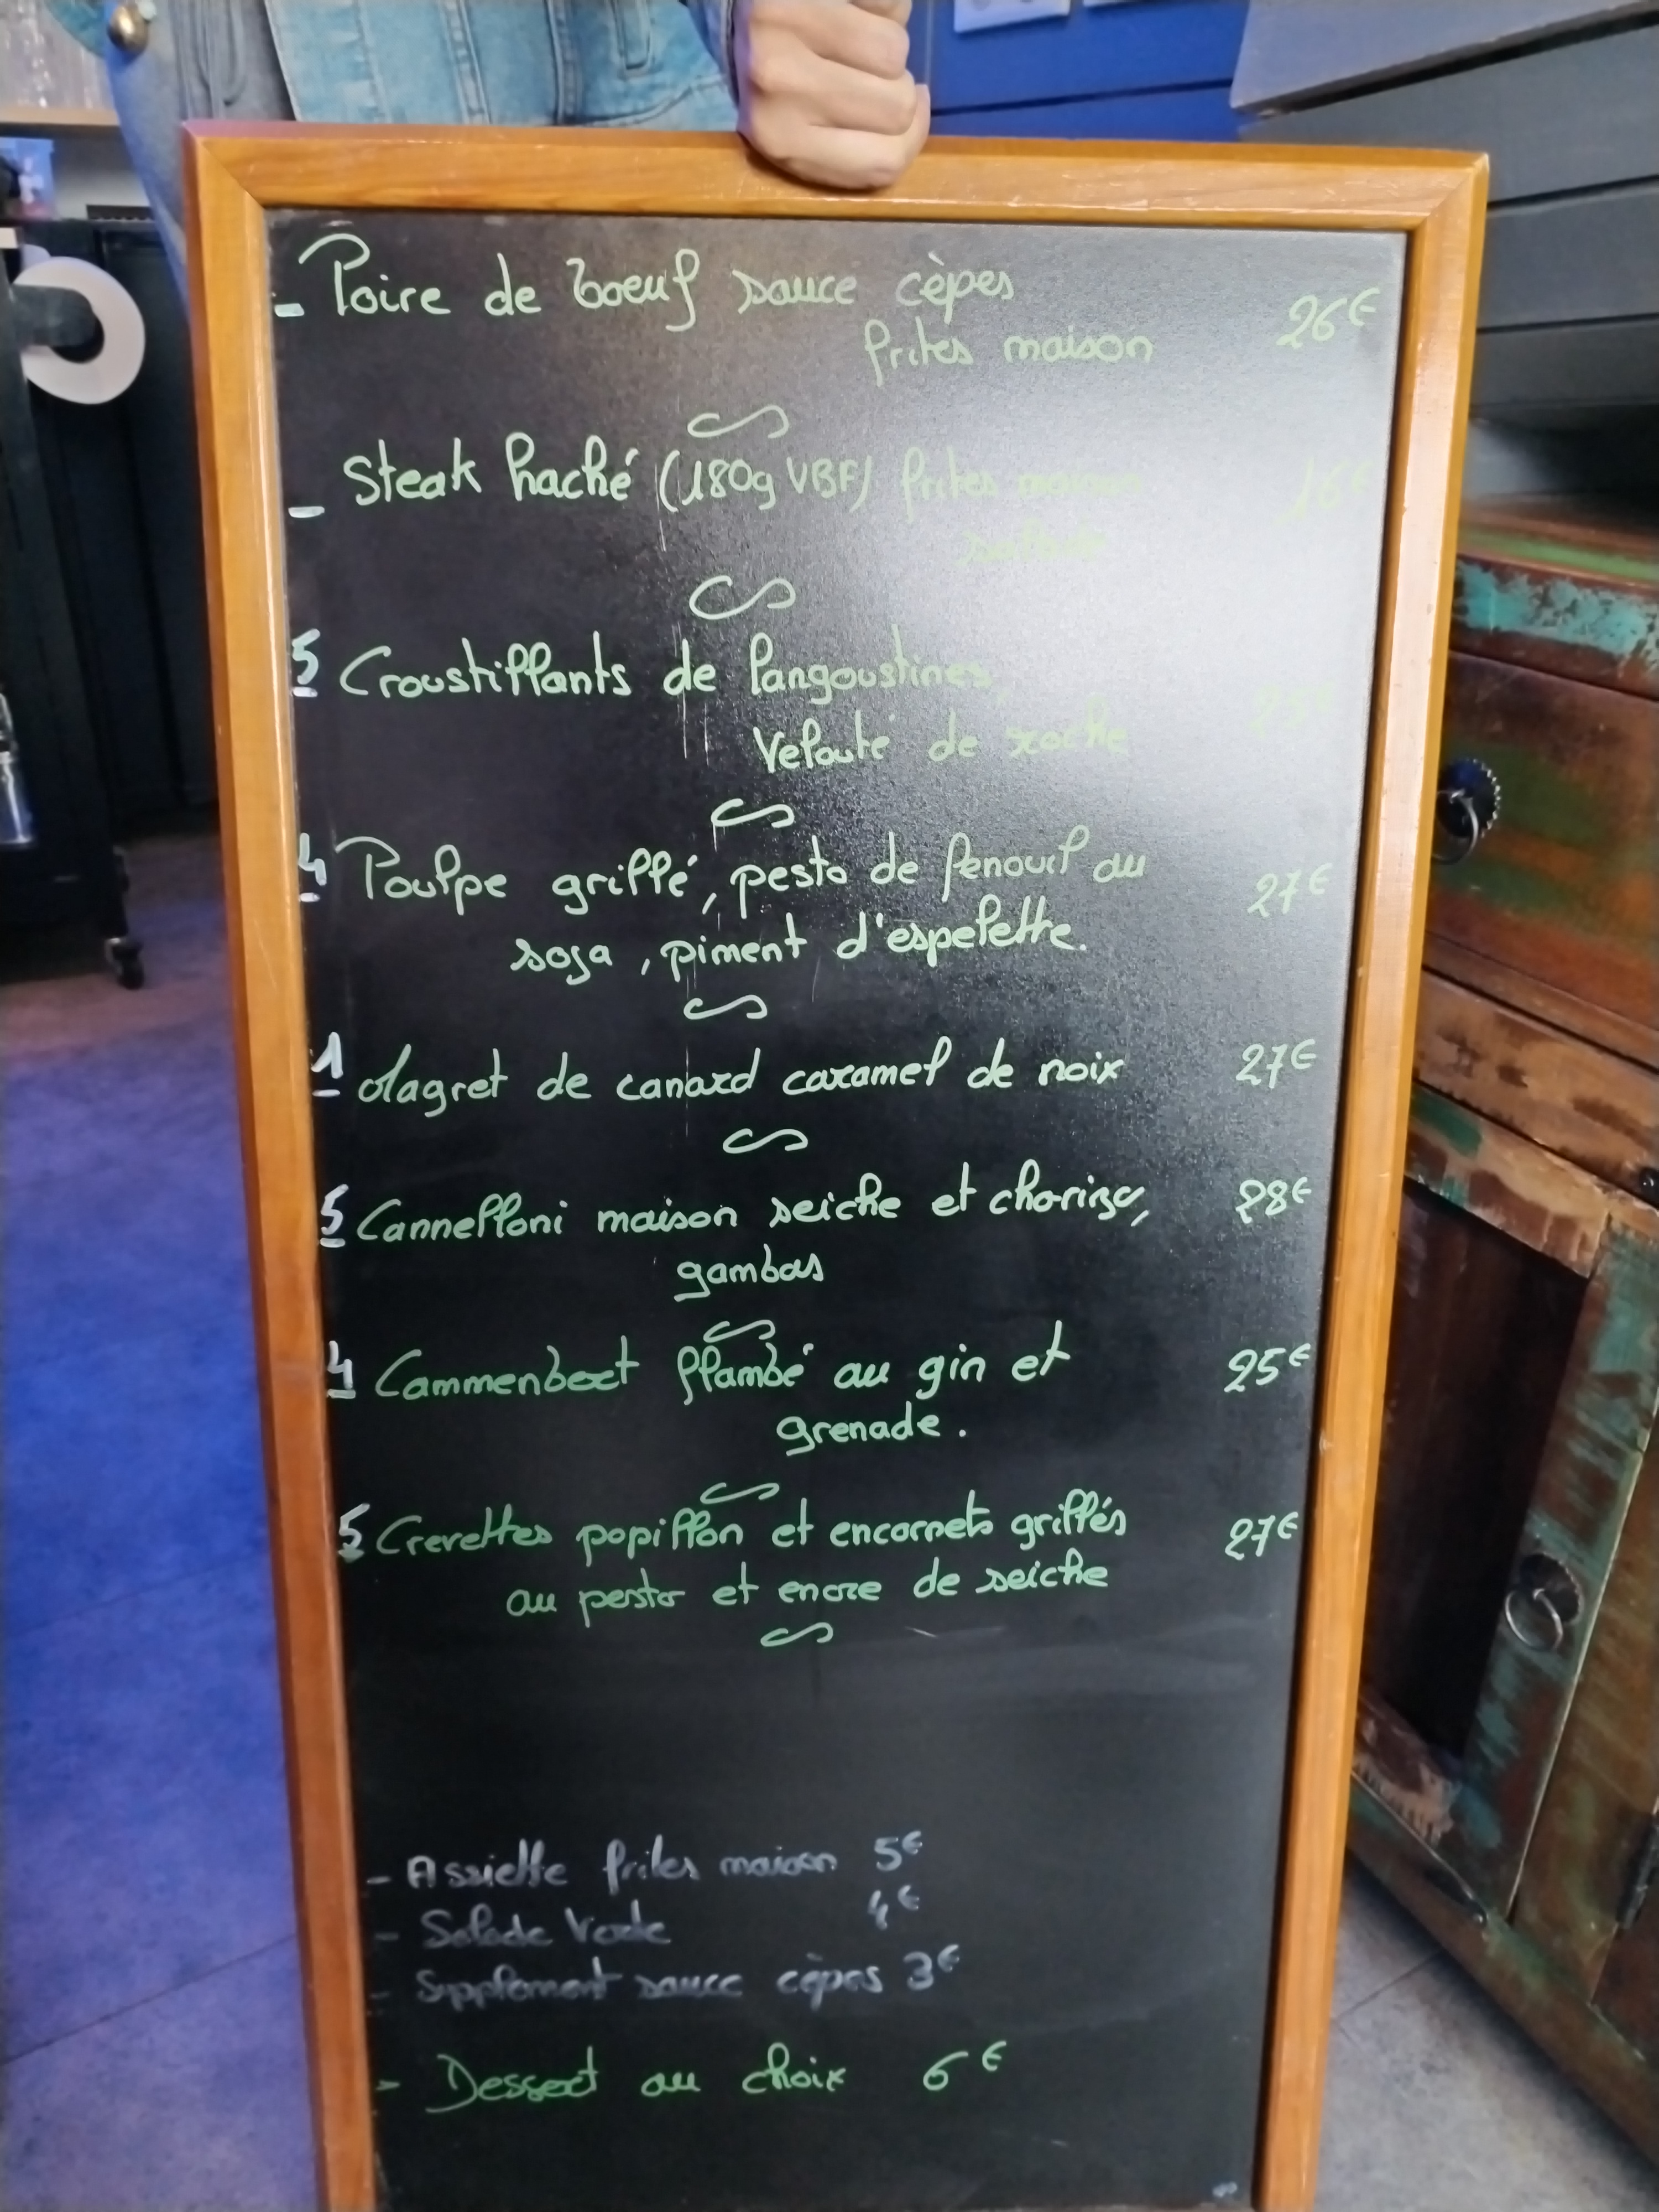 - Poire de boeuf sauce cèpes
frites maison 26€
- Steak haché (180g VBF) frites maison 16€
salade
5 Croustillants de langoustines 25€
Velouté de roche
4 Poulpe grillé, pesto de fenouil au 27€
soja, piment d'espelette.
1 Magret de canard caramel de noix 27€
5 Cannelloni maison seiche et chorizo, 28€
gambas
4 Cammenbert flambé au gin et 25€
grenade.
5 Crevettes popillon et encornets grillés 27€
au pesto et encre de seiche
- Assiette frites maison 5€
- Salade Verte 4€
- Supplement sauce cèpes 3€
- Dessert au choix 6€